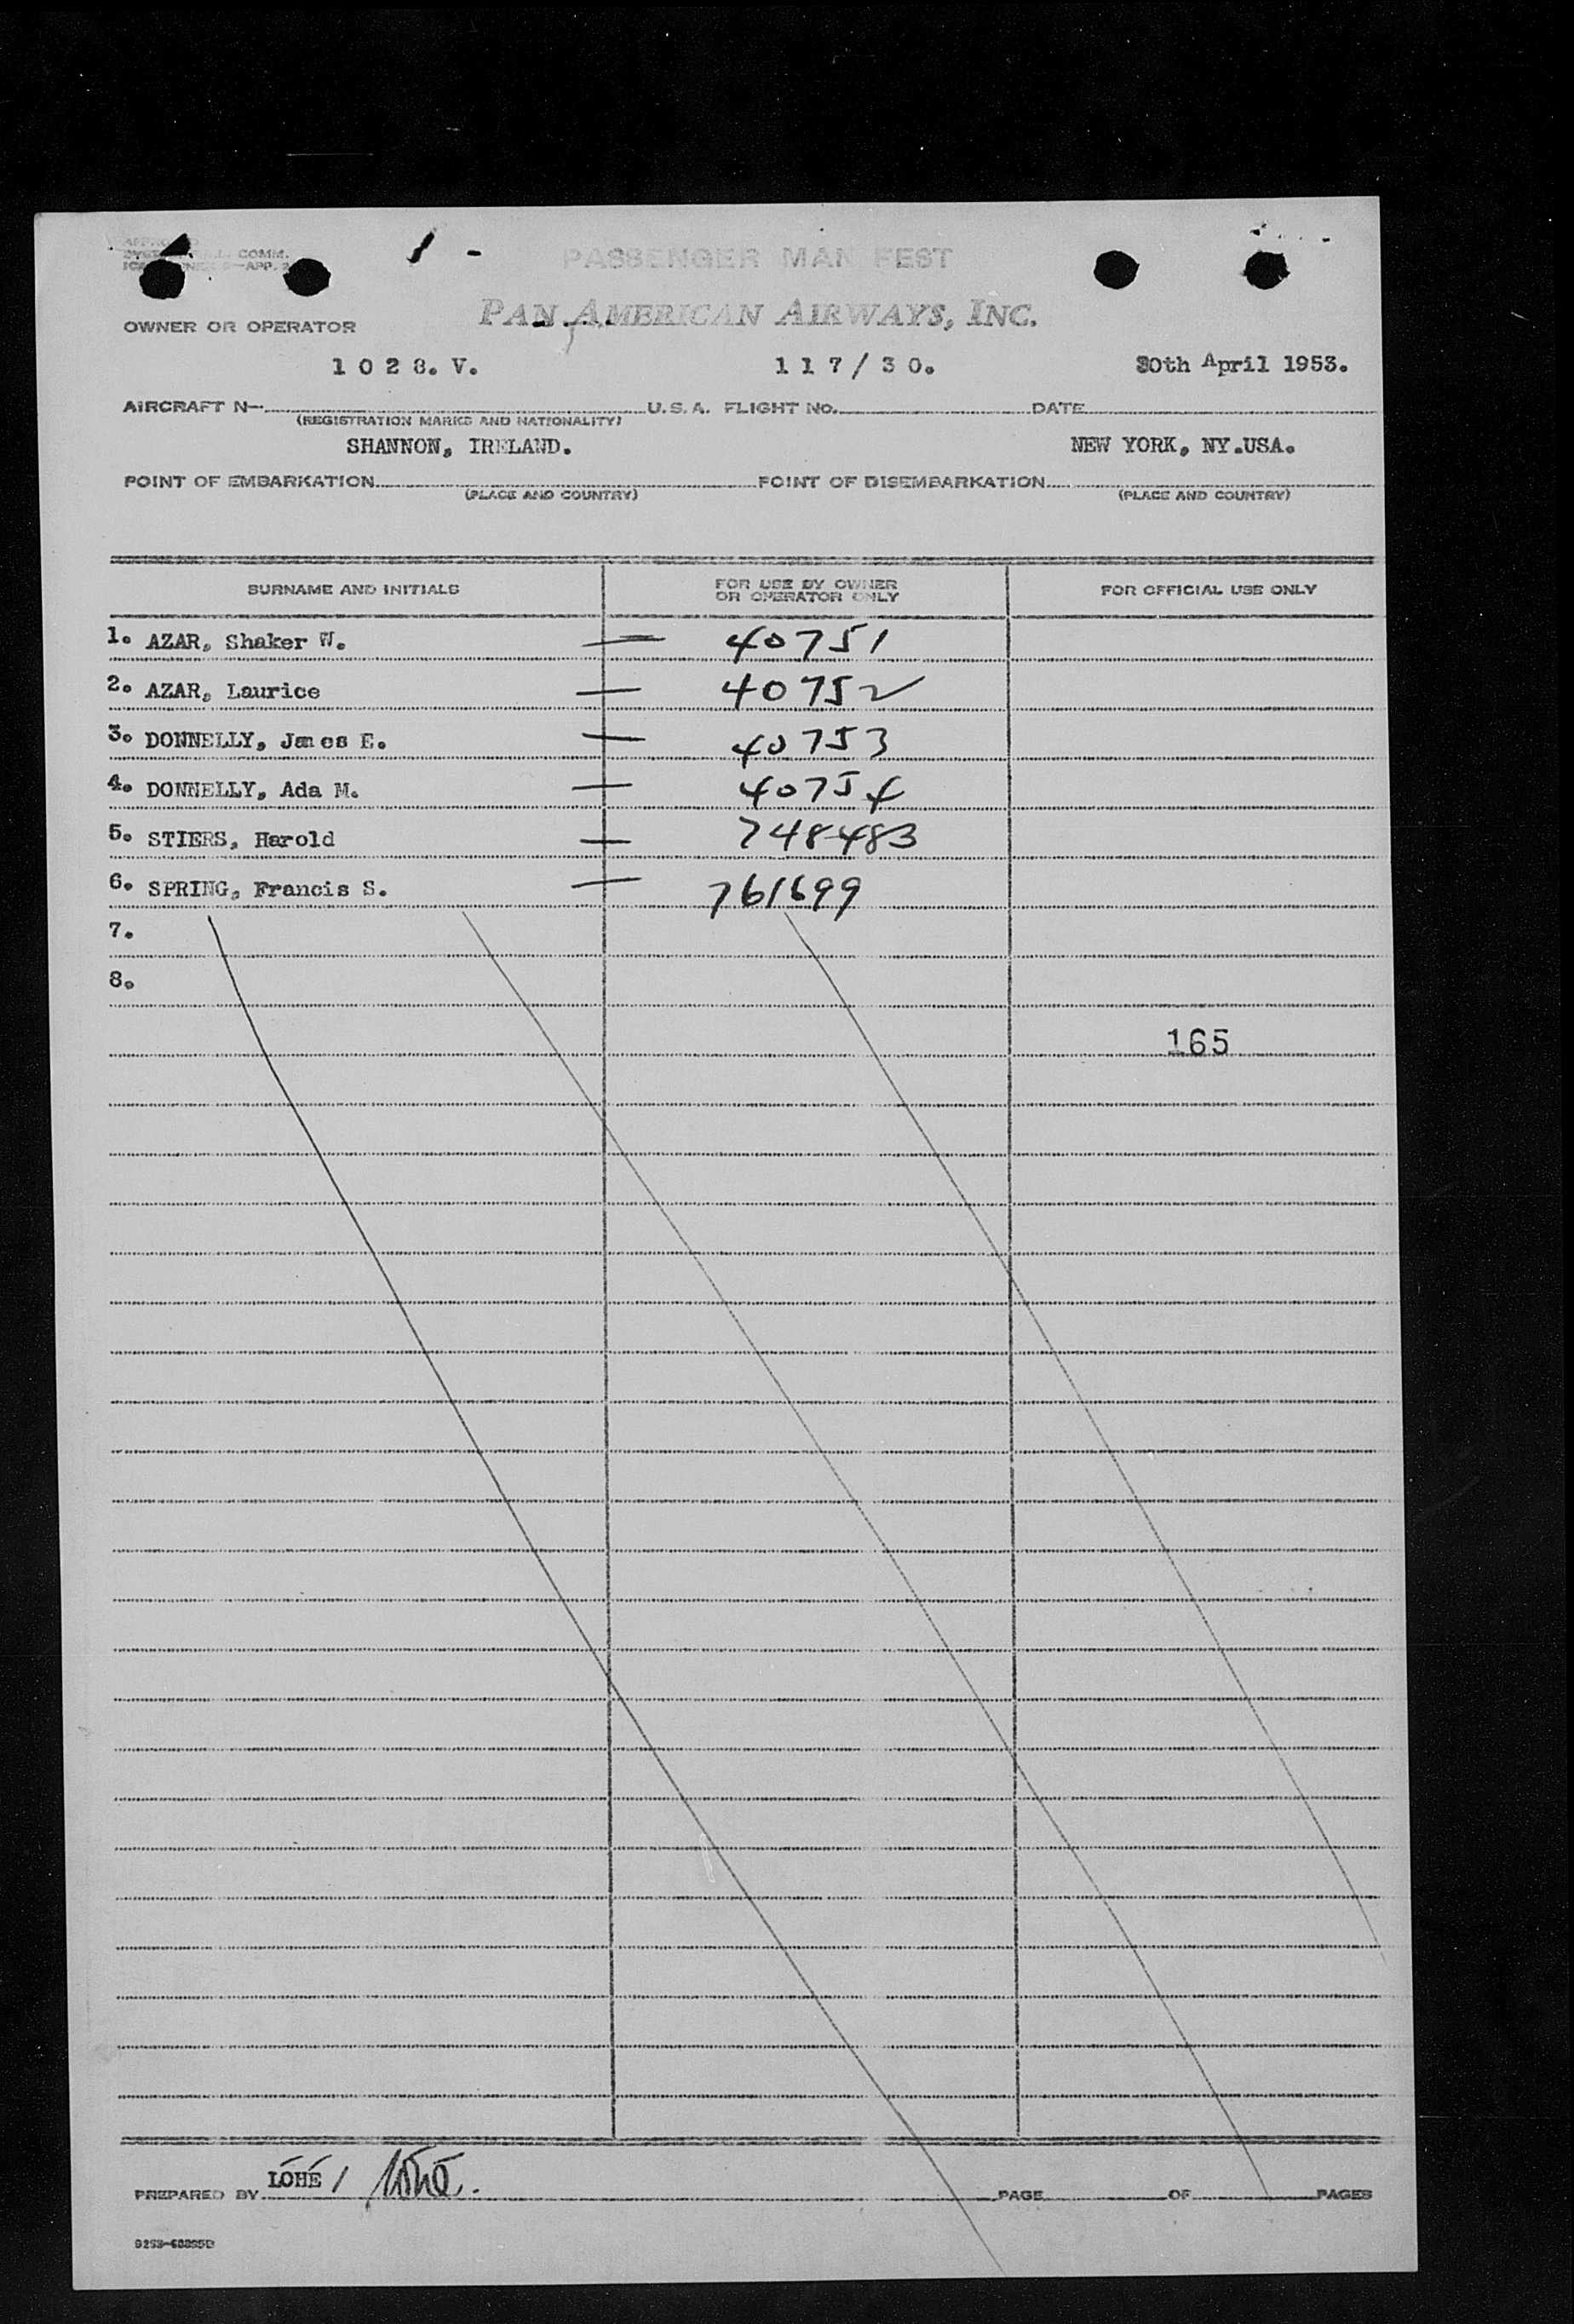 COMM.
APP.
1 -
PASSENGER MAN FEST
PAN AMERICAN AIRWAYS, INC.
OWNER OR OPERATOR
1 0 2 8. V. 1 1 7 / 3 0. 30th April 1953.
AIRCRAFT N— U.S.A. FLIGHT No. DATE
(REGISTRATION MARKS AND NATIONALITY)
SHANNON, IRELAND. NEW YORK, NY.USA.
POINT OF EMBARKATION POINT OF DISEMBARKATION
(PLACE AND COUNTRY) (PLACE AND COUNTRY)
SURNAME AND INITIALS FOR USE BY OWNER OR OPERATOR ONLY FOR OFFICIAL USE ONLY
1. AZAR, Shaker W. — 40751
2. AZAR, Laurice — 40752
3. DONNELLY, James E. — 40753
4. DONNELLY, Ada M. — 40754
5. STIERS, Harold — 748483
6. SPRING, Francis S. — 761699
7.
8.
165
PREPARED BY LOHE / PAGE OF PAGES